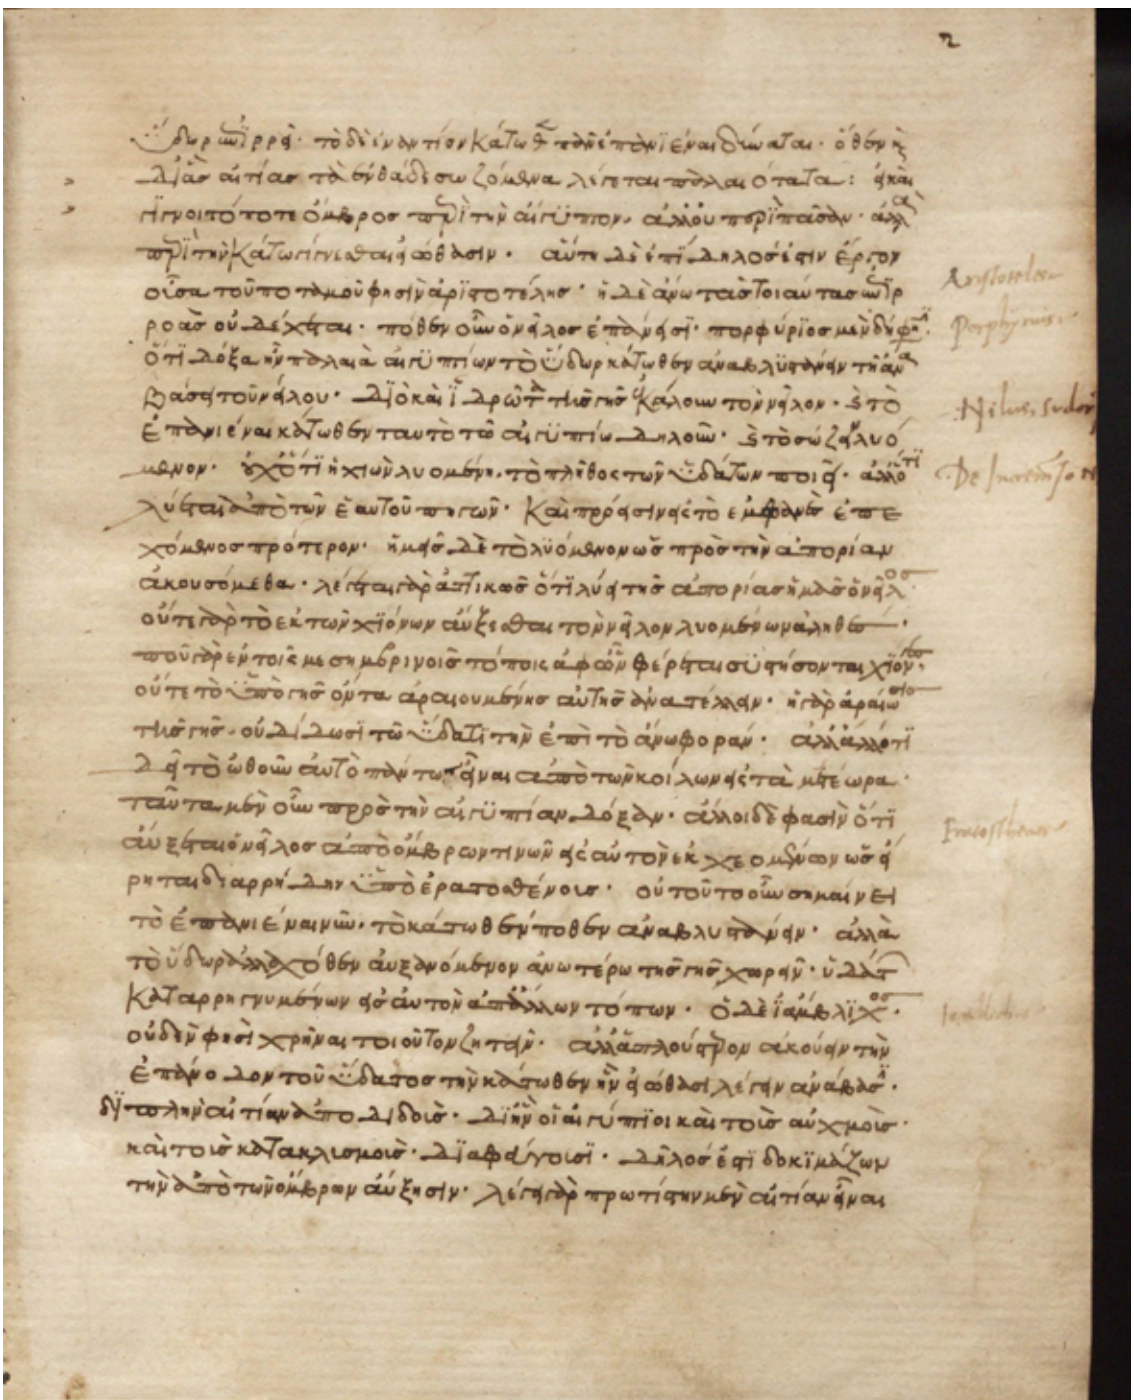 2
ὕδωρ ἐπιρρεῖ· τὸ δὲ ἐναντίον κάτωθεν πᾶν ἐπανϊέναι
δι' ἃς αἰτίας τὰ ἐνθάδε σωζόμενα λέγεται παλαιότατα: εἰ καὶ
γίγνοιτό ποτε ὄμβρος περὶ τὴν αἴγϋπτον, ἀλλ' οὔ τι περὶ πᾶσαν· ἀλλὰ
περὶ τὴν κάτω γίγνεσθαι εἴωθασιν· αὕτη δὲ ἐπίδηλός ἐστιν ἔργον
οὖσα τοῦ ποταμοῦ φησὶν ἀριστοτέλης· ἡ δὲ ἄνω τὰς τοιαύτας ἐπιρ
ροὰς οὐ δέχεται· πόθεν οὖν ὁ νεῖλος ἐπάνεισϊ· πορφύριος μὲν δή φησιν·
ὅτι δόξα ἦν παλαιὰ αἰγϋπτίων τὸ ὕδωρ κάτωθεν ἀναβλϋστάνειν τῇ ἀνα
βάσει τοῦ νείλου· διὸ καὶ ἱδρῶτα τῆς γῆς ἐκάλουν τὸν νεῖλον· καὶ τὸ
ἐπανιέναι κάτωθεν ταυτὸ τῶ αἰγϋπτίω δηλοῦν· καὶ τὸ σώζειν λυό
μενον· οὐχ ὅτι ἡ χιὼν λυομένη, τὸ πλῆθος τῶν ὑδάτων ποιεῖ· ἀλλ' ὅτι
λύεται ἀπὸ τῶν ἑαυτοῦ πηγῶν· καὶ πρόεισιν εἰς τὸ ἐμφανὲς ἐπε
χόμενος πρότερον· ἡμεῖς δὲ τὸ λϋόμενον ὡς πρὸς τὴν ἀπορίαν
ἀκουσόμεθα· λέγεται γὰρ ἀττικῶς ὅτι λύει τῆς ἀπορίας ἡμᾶς ὁ νεῖλος
οὔτε γὰρ τὸ ἐκ τῶν χϊόνων αὔξεσθαι τὸν νεῖλον λυομένων ἀληθὲς·
ποῦ γὰρ ἐν τοῖς μεσημβρινοῖς τόποις ἀφ' ὧν φέρεται συστήσονται χϊόνες·
οὔτε τὸ ὑπὸ γῆς ὄντα ἀραιουμένης αὐτῆς ἀνατέλλειν· ἡ γὰρ ἀραίωσις
τῆς γῆς, οὐ δίδωσι τῶ ὕδατι τὴν ἐπὶ τὸ ἄνω φοράν· ἀλλ' ἄλλό τι
δεῖ τὸ ὠθοῦν αὐτὸ πάντως εἶναι ἀπὸ τῶν κοίλων εἰς τὰ μετέωρα·
ταῦτα μὲν οὖν πρὸς τὴν αἰγϋπτίαν δόξαν· ἄλλοι δὲ φασὶν ὅτι
αὔξεται ὁ νεῖλος ἀπὸ ὄμβρων τινῶν εἰς αὐτὸν ἐκχεομένων ὡς εἴ
ρηται διαρρήδην ὑπὸ ἐρατοσθένους· οὐ τοῦτο οὖν σημαίνει
τὸ ἐπανιέναι νῦν, τὸ κάτωθέν ποθεν ἀναβλυστάνειν· ἀλλὰ
τὸ ὕδωρ ἀλλαχόθεν αὐξανόμενον ἀνωτέρω τῆς γῆς χωρεῖν· ὑδάτων
καταρρηγνυμένων εἰς αὐτὸν ἀπ' ἄλλων τόπων· ὁ δὲ ϊάμβλϊχος·
οὐδέν φησὶ χρῆναι τοιοῦτον ζητεῖν· ἀλλ' ἁπλούστερον ἀκούειν τὴν
ἐπάνοδον τοῦ ὕδατος τὴν κάτωθεν ἣν εἰώθασι λέγειν ἀνάβασιν·
διττὴν αἰτίαν ἀποδιδοὺς· δι' ἣν οἱ αἰγύπτϊοι καὶ τοὺς αὐχμοὺς
καὶ τοὺς κατακλισμοὺς διαφεύγουσϊ· δῆλός ἐστι δοκιμάζων
τὴν ἀπὸ τῶν ὄμβρων αὔξησιν· λέγει γὰρ πρωτίστην μὲν αἰτίαν εἶναι
Aristoteles
Porphyrius
Nilus. sudor
De Increm̃to N
Eratosthenes
Iamblichus